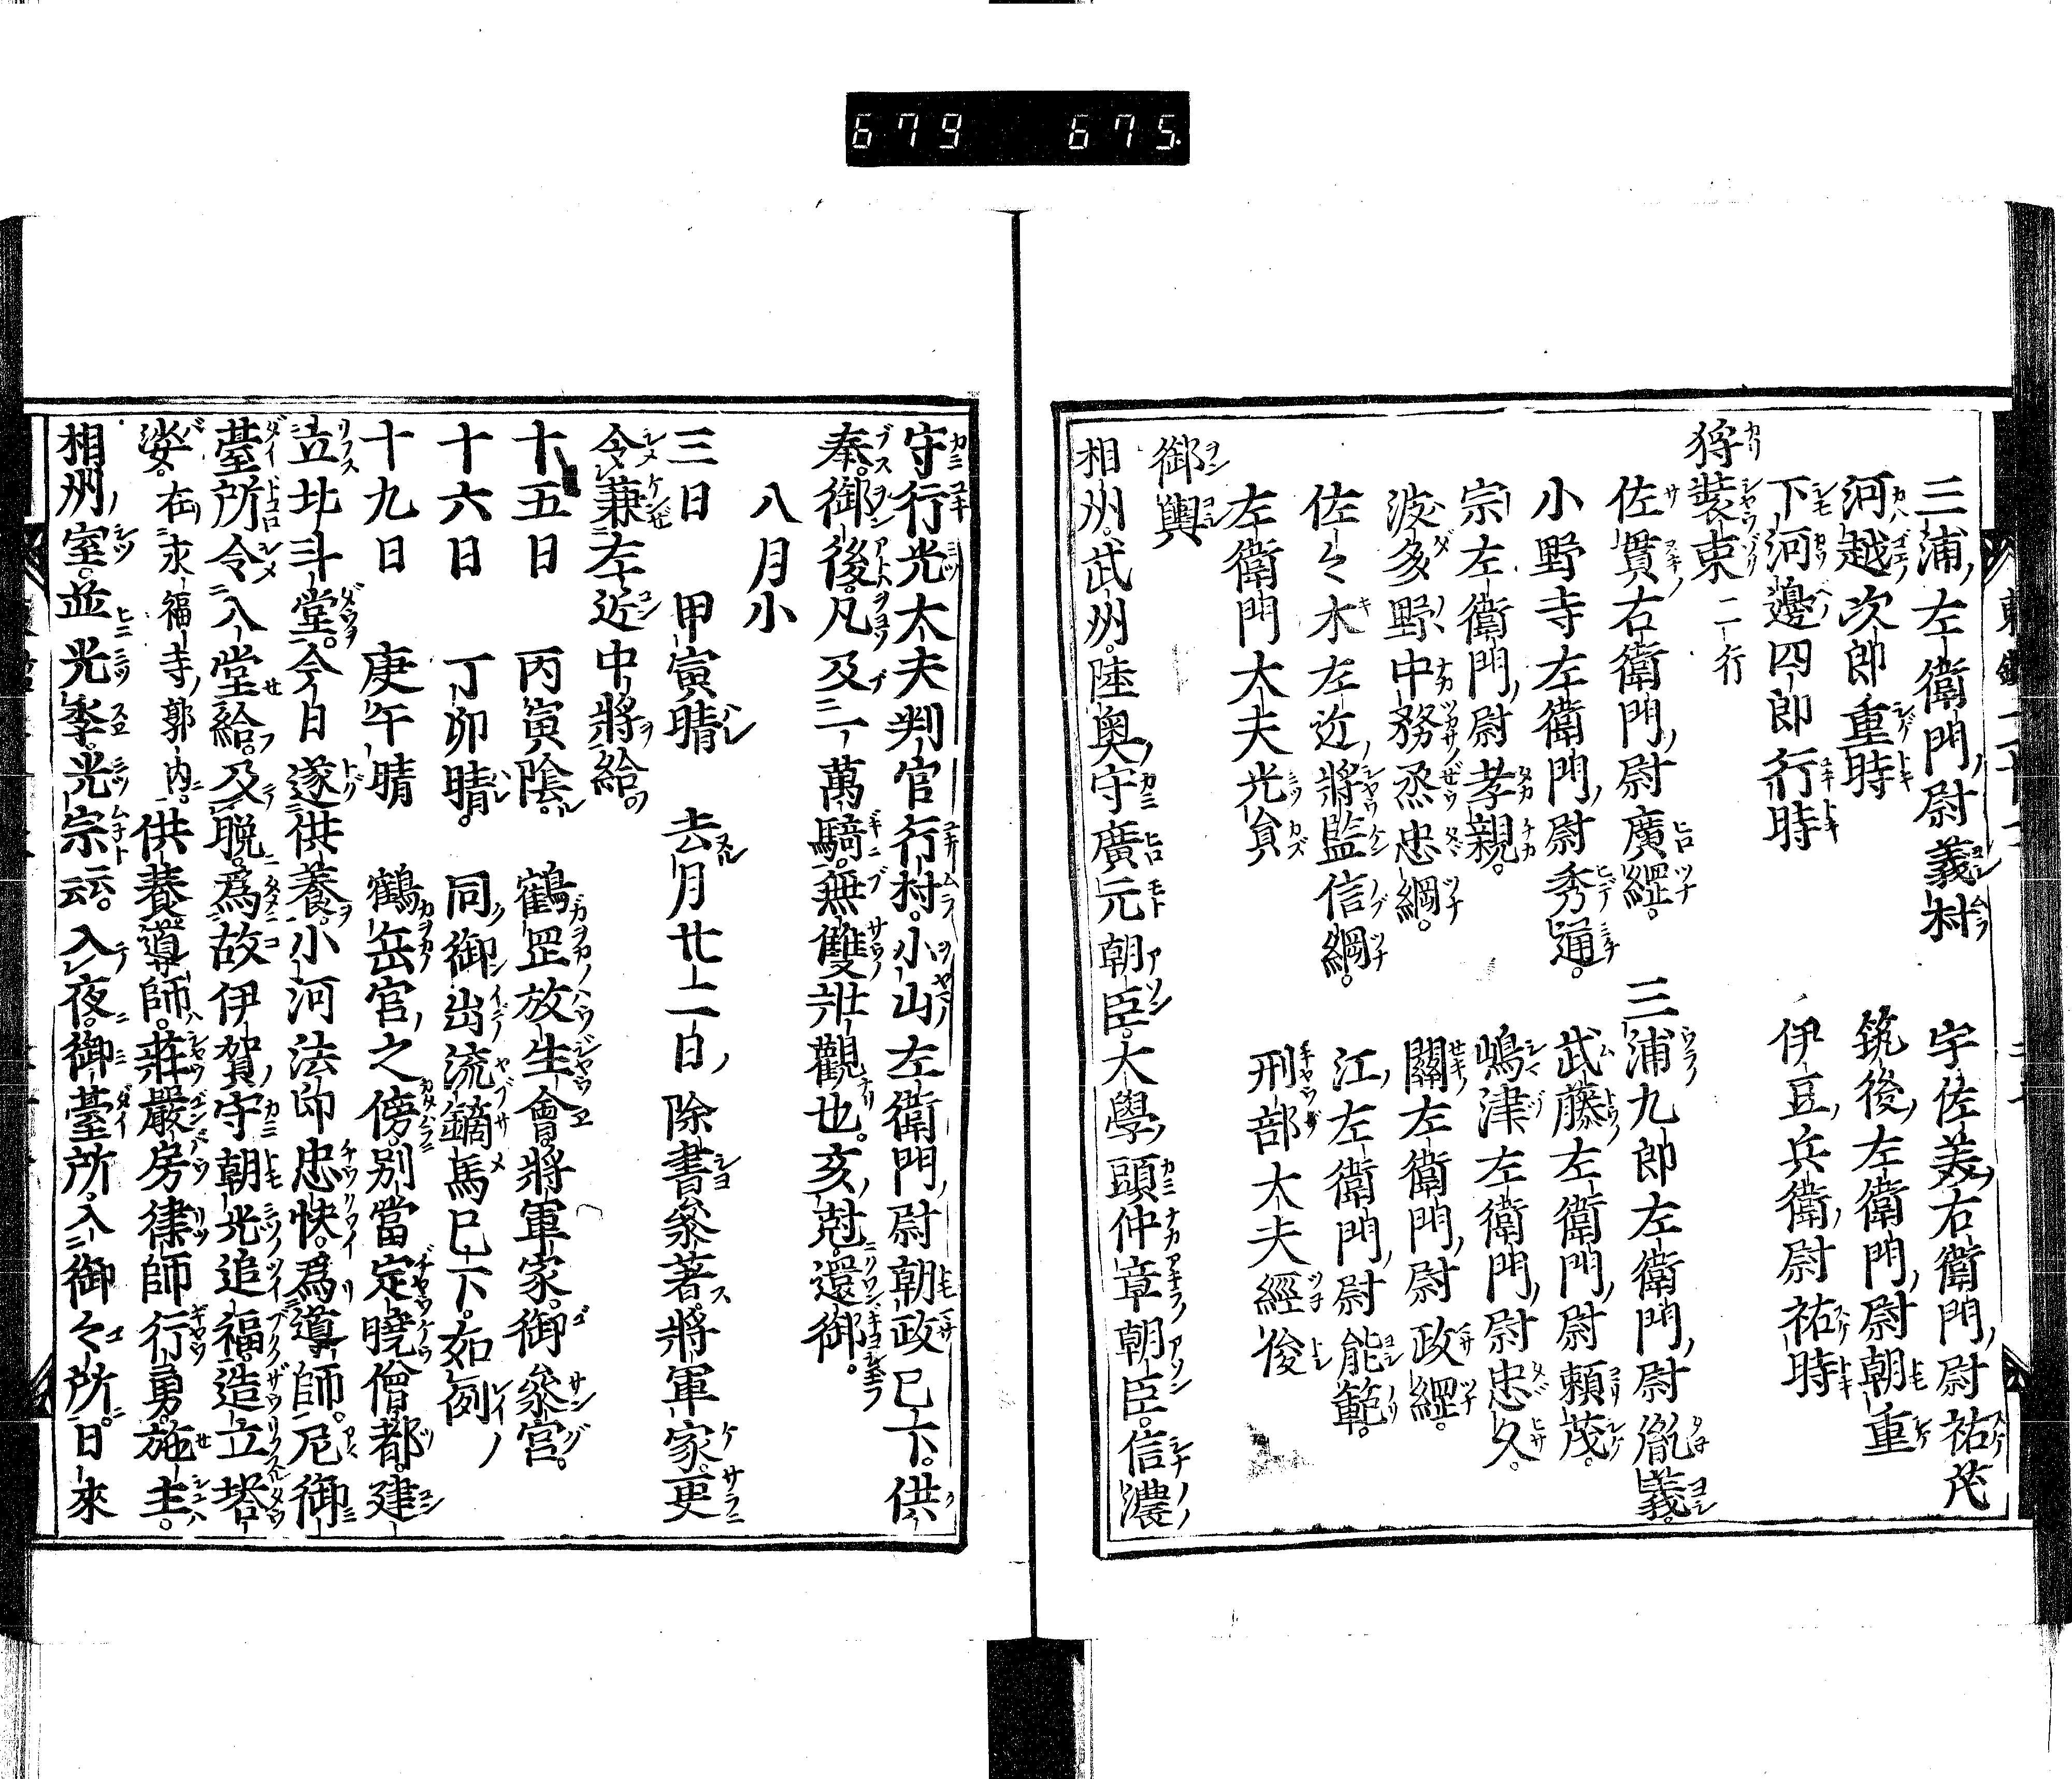 679 675
三浦左衛門尉義村　宇佐美右衛門尉祐茂
河越次郎重時　筑後左衛門尉朝重
下河邊四郎行時　伊豆兵衛尉祐時
狩装束二行
佐貫右衛門尉廣綱。　三浦九郎左衛門尉胤義。
小野寺左衛門尉秀通。　武藤左衛門尉頼茂。
宗左衛門尉孝親。　嶋津左衛門尉忠久。
波多野中務烝忠綱。　關左衛門尉政綱。
佐々木左近將監信綱。　江左衛門尉能範。
左衛門大夫光員　刑部大夫經俊
御輿
相州。武州。陸奥守廣元朝臣。大學頭仲章朝臣。信濃
守行光大夫判官行村。小山左衛門尉朝政已下。供
奉。御後。凡及一萬騎。無雙壯觀也。亥尅。還御。
八月小
三日　甲寅晴　去月廿二日除書參著。將軍家更
令兼左近中將給。
十五日　丙寅陰。　鶴罡放生會。將軍家。御參宮。
十六日　丁卯晴。　同御出流鏑馬已下。如例
十九日　庚午晴　鶴岳宮之傍。別當定曉僧都。建
立北斗堂。今日遂供養。小河法印忠快。爲導師。尼御
臺所令入堂給。及晩。爲故伊賀守朝光追福。造立塔
婆。在永福寺郭内。供養。導師。莊嚴房律師行勇。施主。
相州室。並光季。光宗云云。入夜。御臺所。入御々所。日來